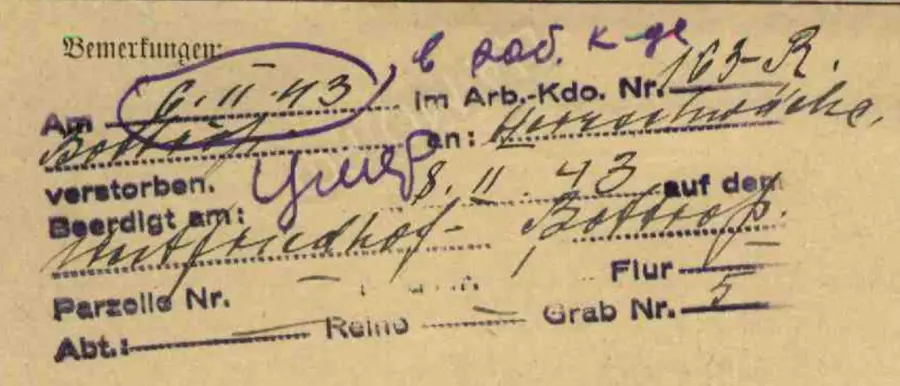 Bemerkungen:
в раб. к-де
Am 6.II.43 im Arb.-Kdo. Nr. 163-R.
Bottrop. an: Herzschwäche.
verstorben. Умер
Beerdigt am: 8.II.43 auf dem
Westfriedhof- Bottrop.
Parzelle Nr. - Flur -
Abt.: - Reihe - Grab Nr. 5